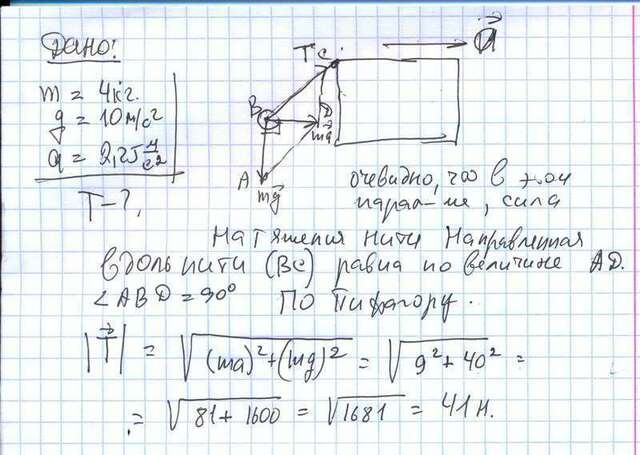 Дано:
m = 4кг.
g = 10 м/с²
a = 2,25 м/с²
T - ?
T C
a
B
D
ma
A
mg
очевидно, что в этом
парал-ме, сила
натяжения нити направленная
вдоль нити (BC) равна по величине AD.
∠ABD = 90° По Пифагору.
|T| = √(ma)²+(mg)² = √9²+40² =
= √81+1600 = √1681 = 41 н.